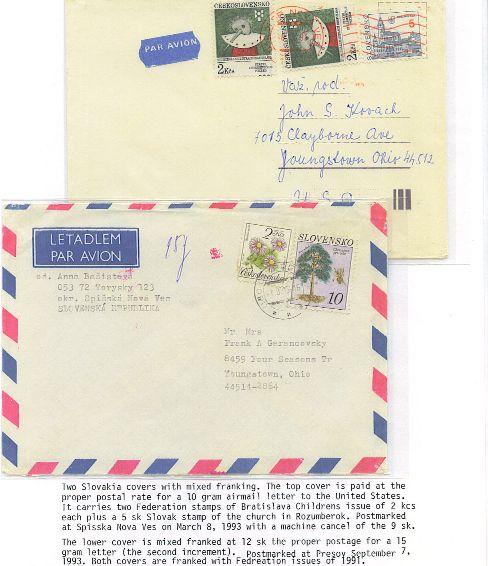 PAR AVION
ČESKOSLOVENSKO
2 Kčs
ČESKOSLOVENSKO
2 Kčs
SLOVENSKO
Važ. rod.
John S. Kovach
7015 Clayborne Ave
Youngstown Ohio 44512
U S A
LETADLEM
PAR AVION
15g
od. Anna
053 72 Torysky 123
okr. Spišská Nova Ves
SLOVENSKÁ REPUBLIKA
2 Kčs
Československo
SLOVENSKO
10
Mr Mrs
Frank A Gerancovsky
8459 Four Seasons Tr
Youngstown, Ohio
44514-2864
Two Slovakia covers with mixed franking. The top cover is paid at the
proper postal rate for a 10 gram airmail letter to the United States.
It carries two Federation stamps of Bratislava Childrens issue of 2 kcs
each plus a 5 sk Slovak stamp of the church in Rozumberok. Postmarked
at Spisska Nova Ves on March 8, 1993 with a machine cancel of the 9 sk.
The lower cover is mixed franked at 12 sk the proper postage for a 15
gram letter (the second increment). Postmarked at Presov September 7,
1993. Both covers are franked with Fedreation issues of 1991.